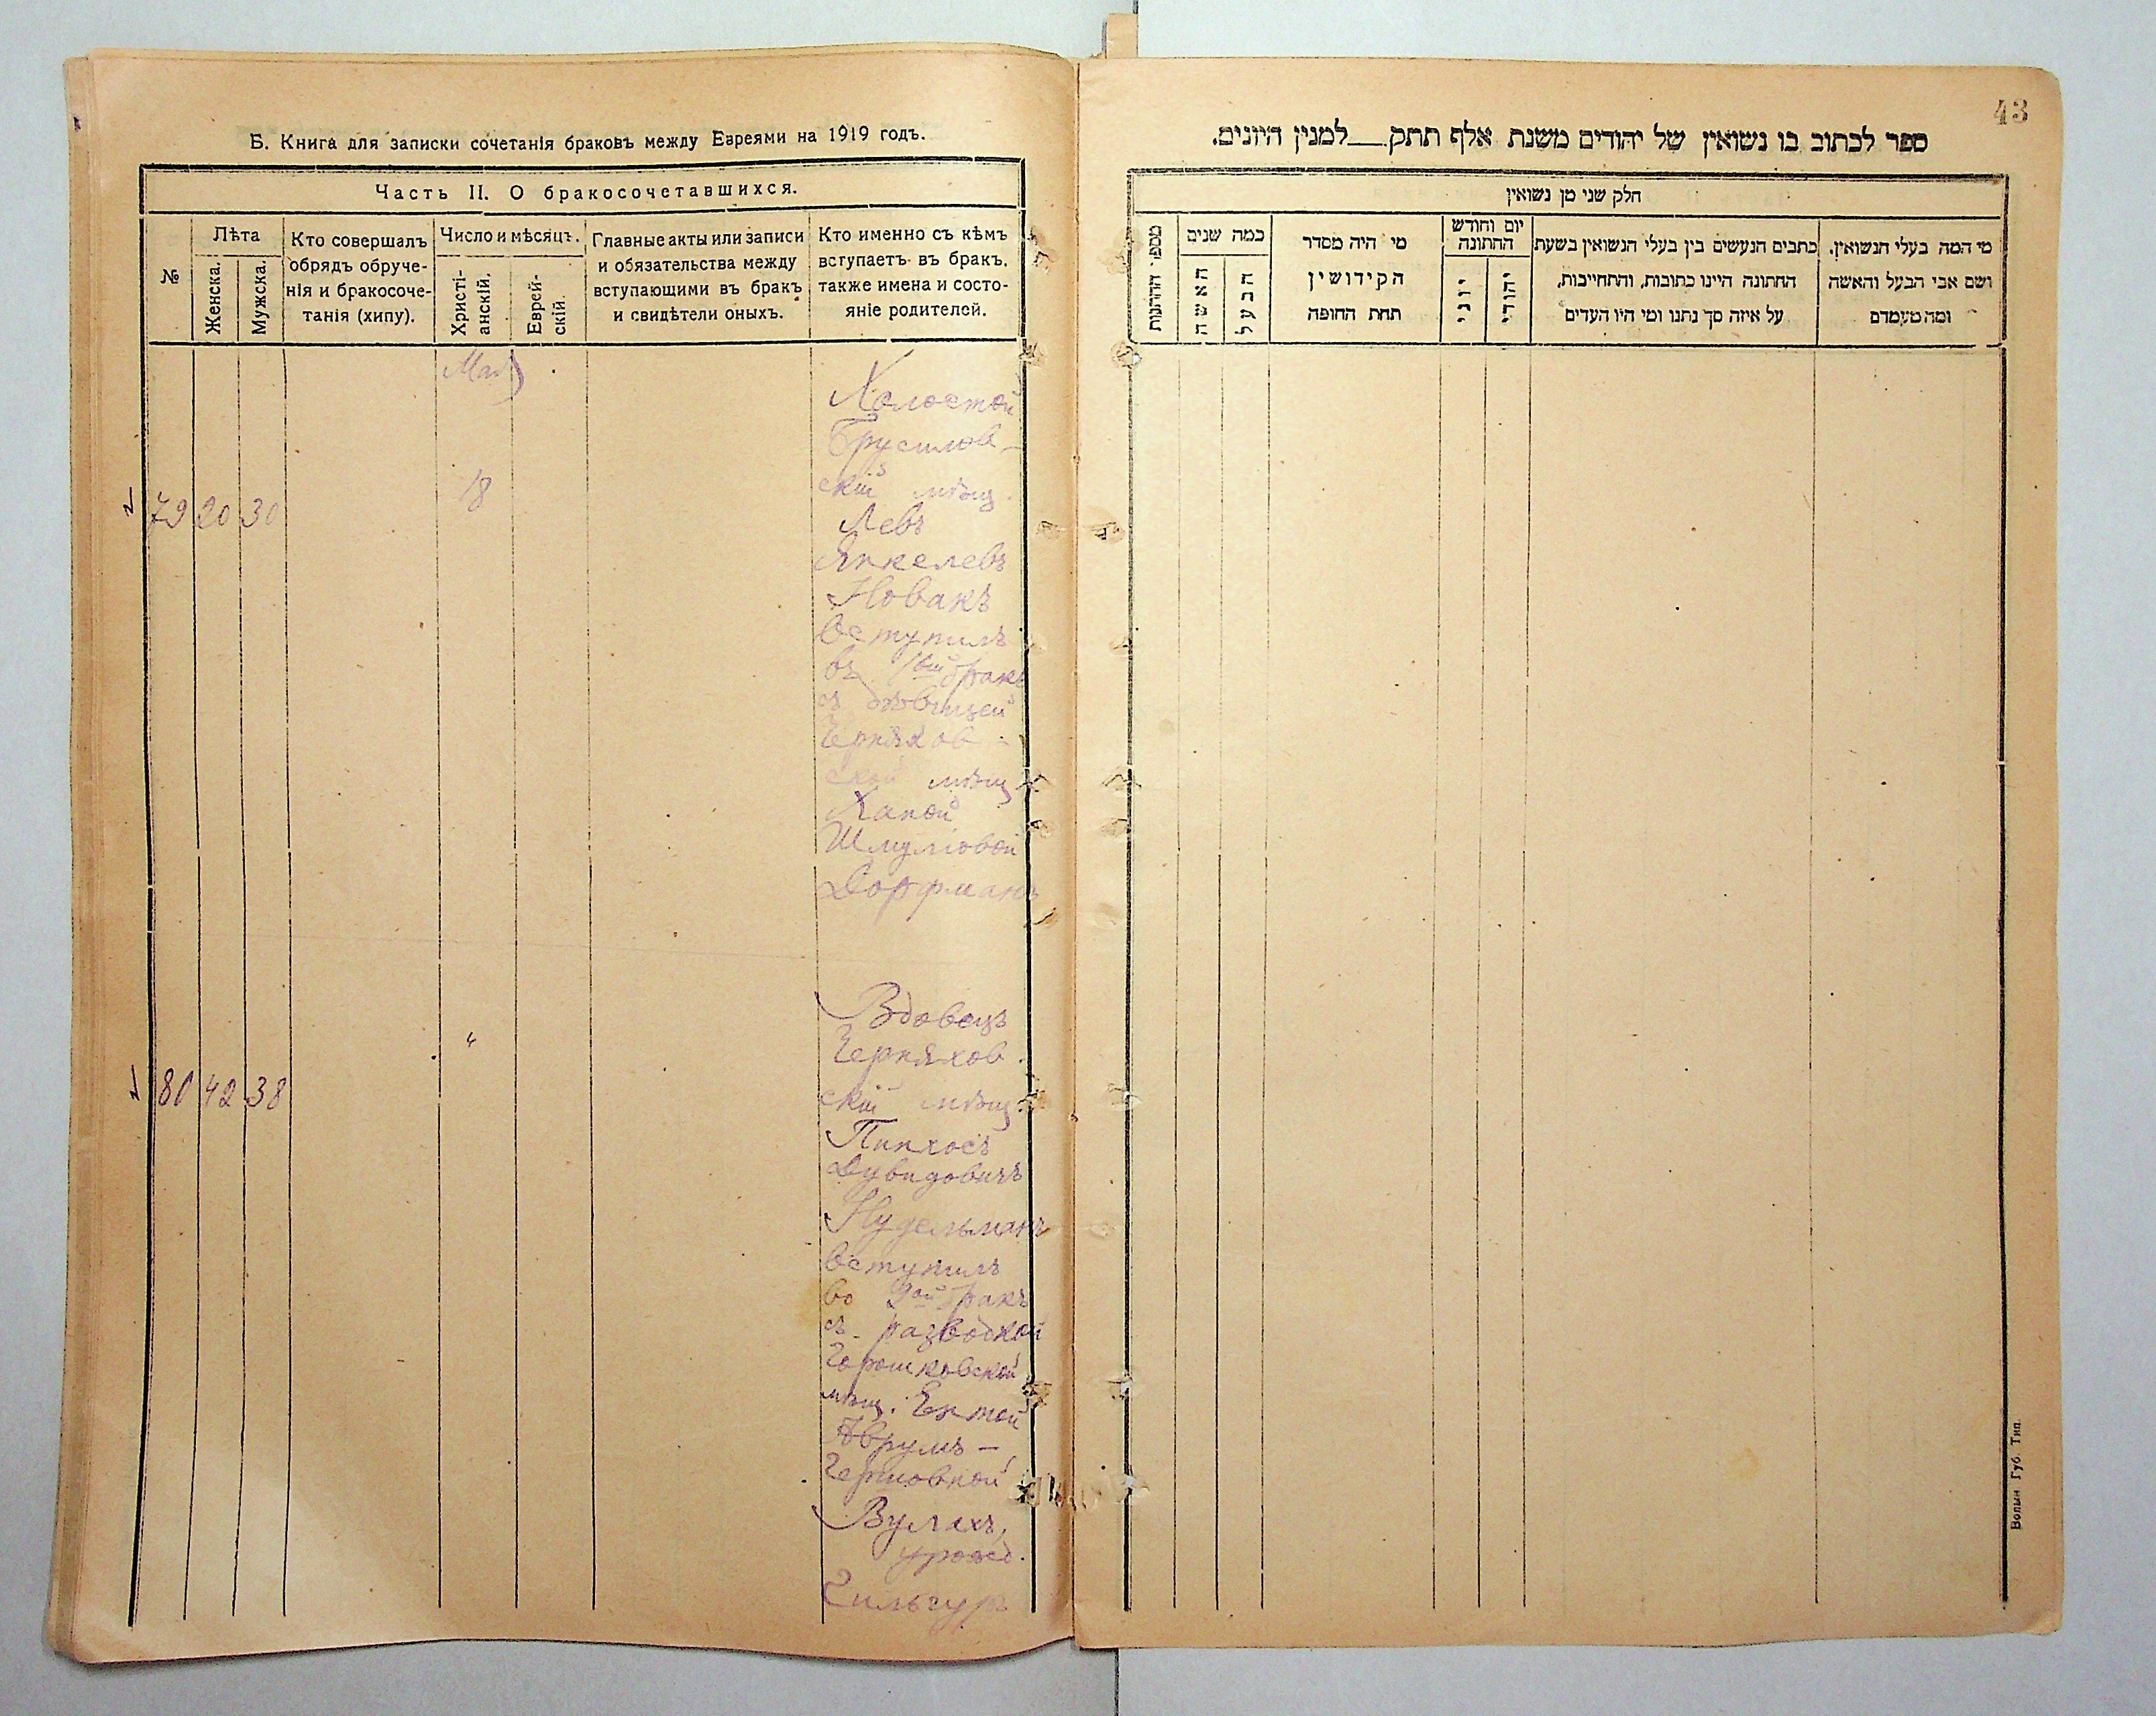 Б. Книга для записки сочетанія браковъ между Евреями на 1919 годъ.
Часть II. О бракосочетавшихся.
№
Лѣта
Женска.
Мужска.
Кто совершалъ
обрядъ обруче-
нія и бракосоче-
танія (хипу).
Число и мѣсяцъ.
Христі-
анскій.
Еврей-
скій.
Главные акты или записи
и обязательства между
вступающими въ бракъ
и свидѣтели оныхъ.
Кто именно съ кѣмъ
вступаетъ въ бракъ,
также имена и состо-
яніе родителей.
Май
79 20 30
18
Холостой
Брусилов-
скій мѣщ.
Левъ
Янкелевъ
Новакъ
вступилъ
въ 1ый бракъ
съ дѣвицей
Черняхов-
ской мѣщ.
Ханой
Шмулiовой
Дорфманъ
80 42 38
"
Вдовецъ
Черняхов-
скій мѣщ.
Пинхосъ
Дувидовичъ
Нудельманъ
вступилъ
во 2ой бракъ
съ разводкой
Горошковской
мѣщ. Ентой
Аврумъ-
Гершовной
Вулахъ,
урожд.
43
ספר לכתוב בו נשואין של יהודים משנת אלף תתק___למנין היונים.
חלק שני מן נשואין
מספר החתונות
כמה שנים
האשה
הבעל
מי היה מסדר
הקידושין
תחת החופה
יום וחודש
החתונה
יוני
יהודי
כתבים הנעשים בין בעלי הנשואין בשעת
החתונה היינו כתובות, והתחייבות,
על איזה סך נתנו ומי היו העדים
מי המה בעלי הנשואין,
ושם אבי הבעל והאשה
ומה מעמדם
Волын Губ Тип.